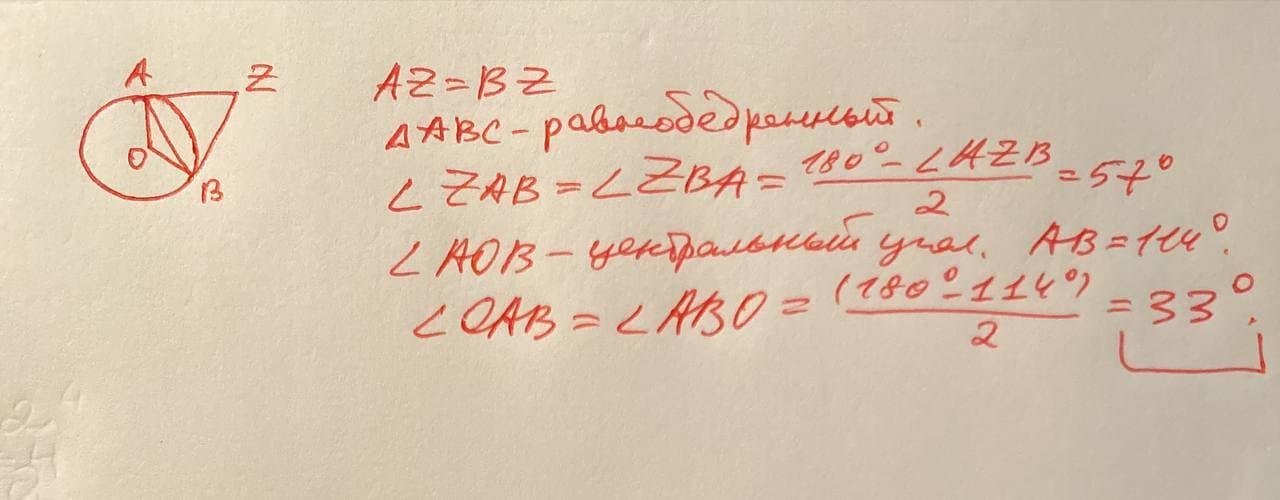 A Z
O
B
AZ = BZ
△ABC - равнобедренный.
∠ZAB = ∠ZBA = (180° - ∠AZB)/2 = 57°
∠AOB - центральный угол. AB = 114°.
∠OAB = ∠ABO = (180° - 114°)/2 = 33°.